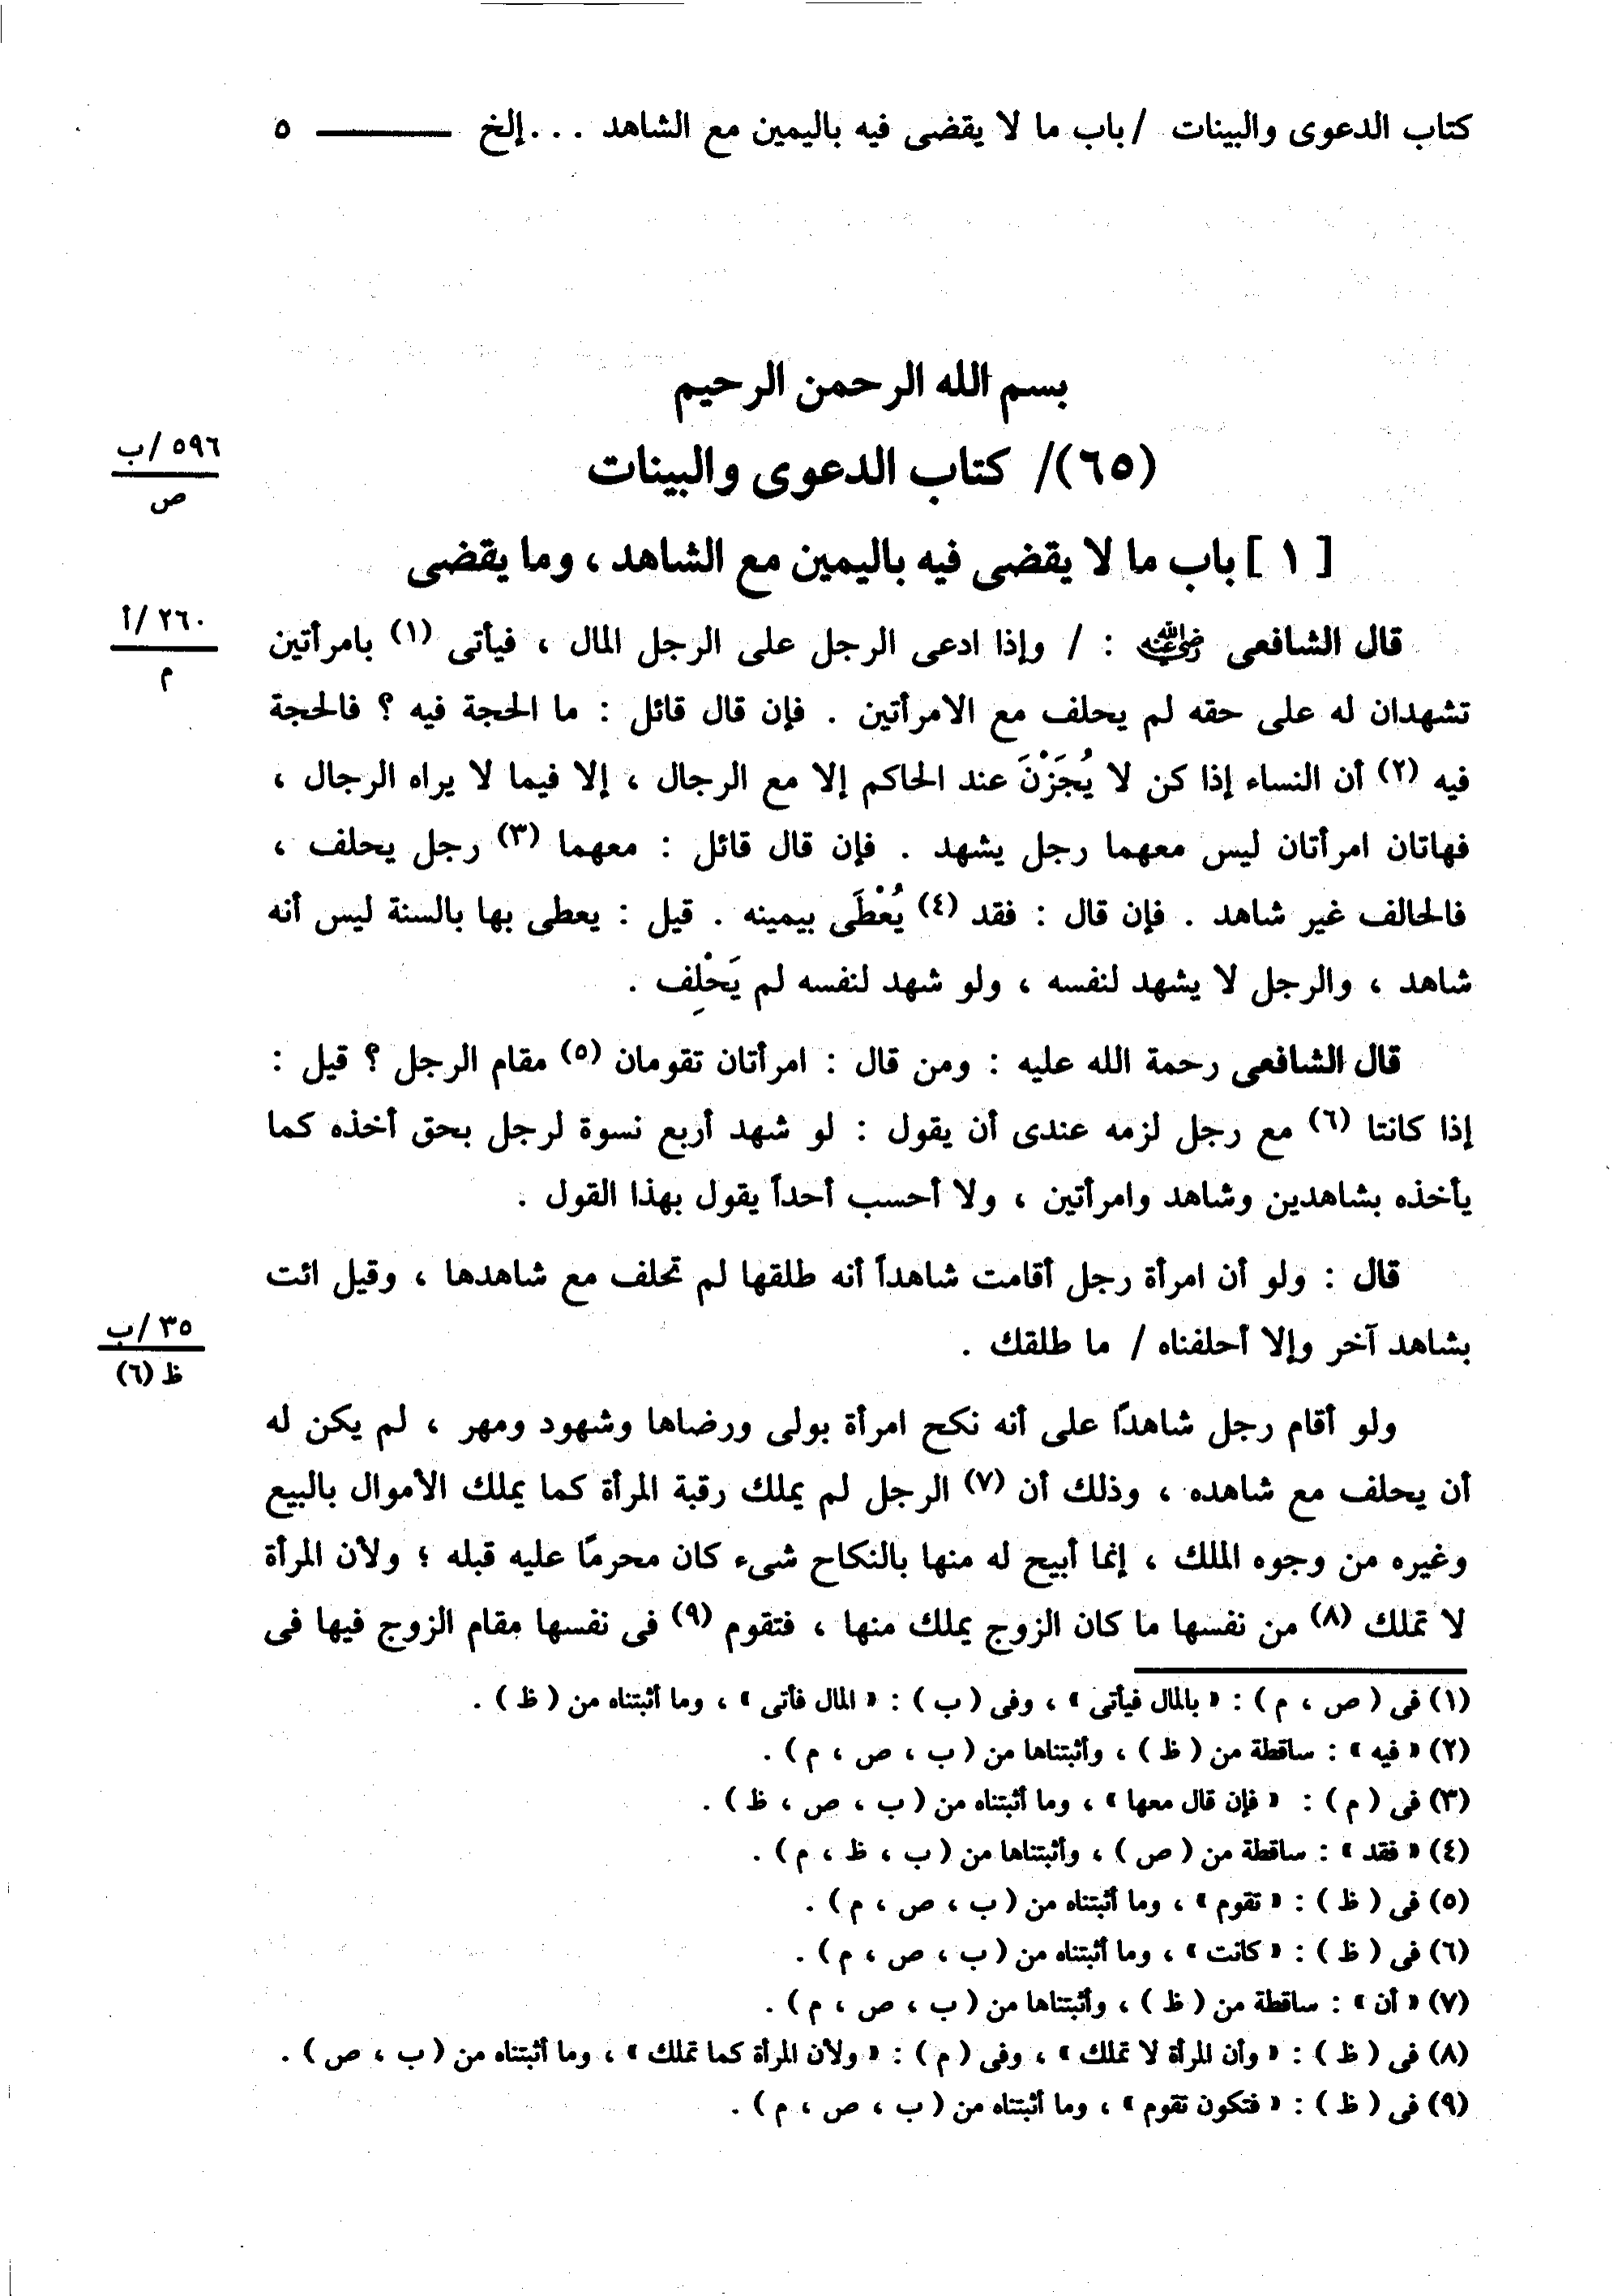 كتاب الدعوى والبينات / باب ما لا يقضى فيه باليمين مع الشاهد . . . إلخ ــــــــ ٥
بسم الله الرحمن الرحيم
(٦٥)/ كتاب الدعوى والبينات
٥٩٦ /ب
ص
[ ١ ] باب ما لا يقضى فيه باليمين مع الشاهد ، وما يقضى
٢٦٠ /أ
م
قال الشافعى رضي الله عنه : / وإذا ادعى الرجل على الرجل المال ، فيأتى (١) بامرأتين
تشهدان له على حقه لم يحلف مع الامرأتين . فإن قال قائل : ما الحجة فيه ؟ فالحجة
فيه (٢) أن النساء إذا كن لا يُجَزْنَ عند الحاكم إلا مع الرجال ، إلا فيما لا يراه الرجال ،
فهاتان امرأتان ليس معهما رجل يشهد . فإن قال قائل : معهما (٣) رجل يحلف ،
فالحالف غير شاهد . فإن قال : فقد (٤) يُعْطَى بيمينه . قيل : يعطى بها بالسنة ليس أنه
شاهد ، والرجل لا يشهد لنفسه ، ولو شهد لنفسه لم يَحْلِف .
قال الشافعى رحمة الله عليه : ومن قال : امرأتان تقومان (٥) مقام الرجل ؟ قيل :
إذا كانتا (٦) مع رجل لزمه عندى أن يقول : لو شهد أربع نسوة لرجل بحق أخذه كما
يأخذه بشاهدين وشاهد وامرأتين ، ولا أحسب أحداً يقول بهذا القول .
قال : ولو أن امرأة رجل أقامت شاهداً أنه طلقها لم تحلف مع شاهدها ، وقيل ائت
بشاهد آخر وإلا أحلفناه / ما طلقك .
٣٥ /ب
ظ (٦)
ولو أقام رجل شاهدًا على أنه نكح امرأة بولى ورضاها وشهود ومهر ، لم يكن له
أن يحلف مع شاهده ، وذلك أن (٧) الرجل لم يملك رقبة المرأة كما يملك الأموال بالبيع
وغيره من وجوه الملك ، إنما أبيح له منها بالنكاح شىء كان محرمًا عليه قبله ؛ ولأن المرأة
لا تملك (٨) من نفسها ما كان الزوج يملك منها ، فتقوم (٩) فى نفسها مقام الزوج فيها فى
(١) فى ( ص ، م ) : « بالمال فيأتى » ، وفى ( ب ) : « المال فأتى » ، وما أثبتناه من ( ظ ) .
(٢) « فيه » : ساقطة من ( ظ ) ، وأثبتناها من ( ب ، ص ، م ) .
(٣) فى ( م ) : « فإن قال معها » ، وما أثبتناه من ( ب ، ص ، ظ ) .
(٤) « فقد » : ساقطة من ( ص ) ، وأثبتناها من ( ب ، ظ ، م ) .
(٥) فى ( ظ ) : « تقوم » ، وما أثبتناه من ( ب ، ص ، م ) .
(٦) فى ( ظ ) : « كانت » ، وما أثبتناه من ( ب ، ص ، م ) .
(٧) « أن » : ساقطة من ( ظ ) ، وأثبتناها من ( ب ، ص ، م ) .
(٨) فى ( ظ ) : « وأن المرأة لا تملك » ، وفى ( م ) : « ولأن المرأة كما تملك » ، وما أثبتناه من ( ب ، ص ) .
(٩) فى ( ظ ) : « فتكون تقوم » ، وما أثبتناه من ( ب ، ص ، م ) .